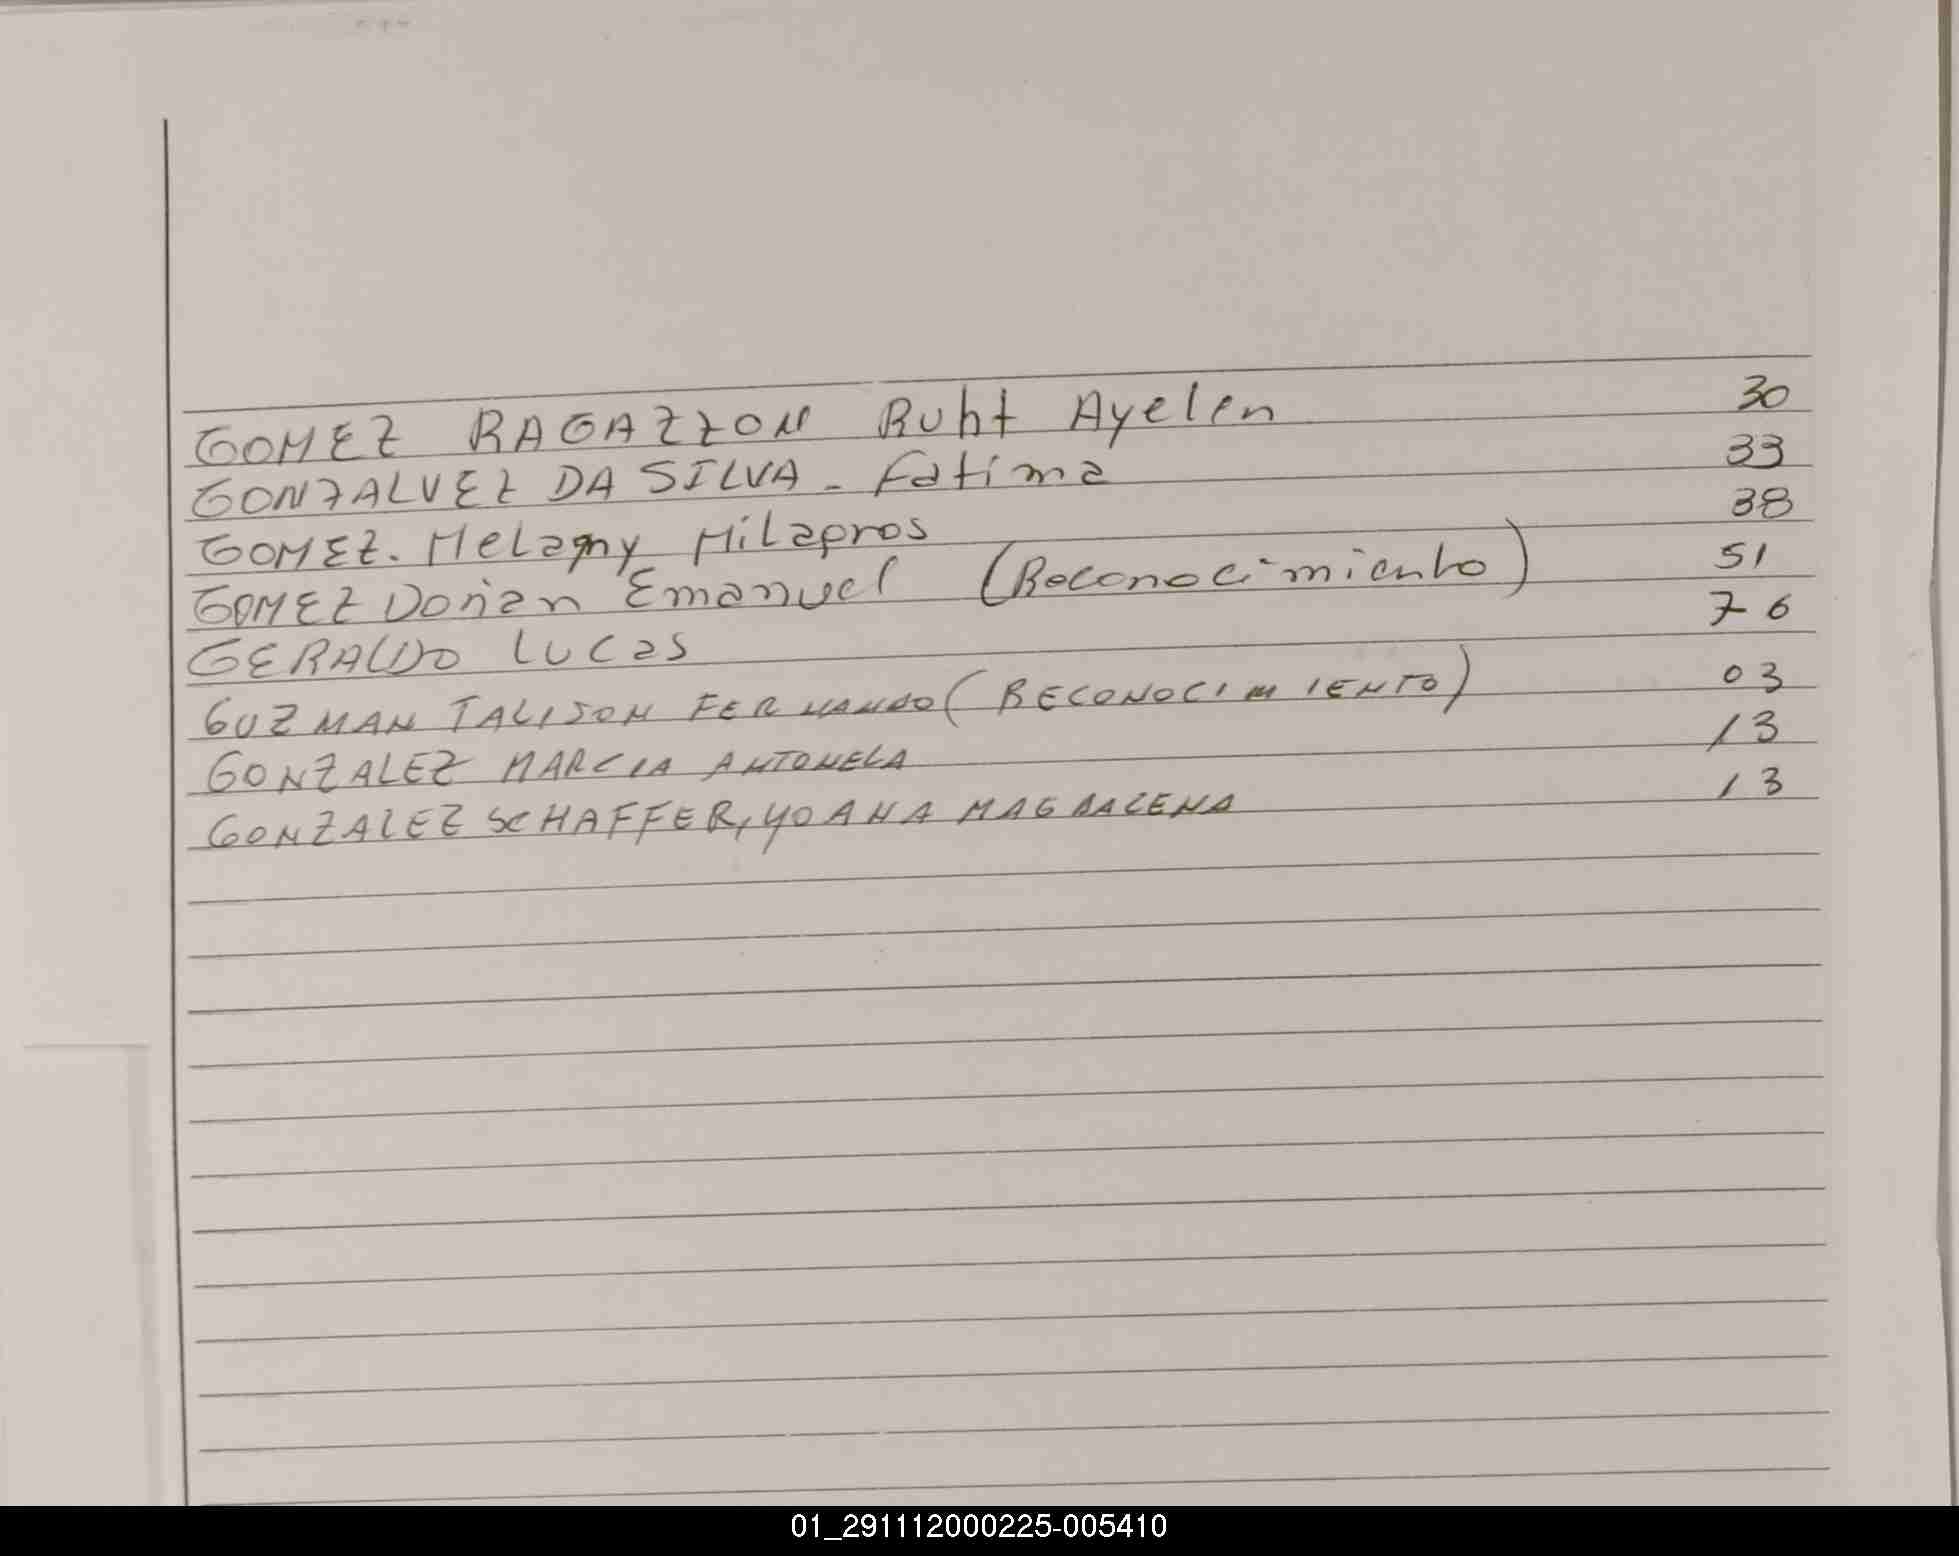 GOMEZ RAGAZZON Ruht Ayelen 30
GONZALVEZ DA SILVA - Fatima 33
GOMEZ. Melagny Milagros 38
GOMEZ Dorian Emanuel (Reconocimiento) 51
GERALDO Lucas 76
GUZMAN TALISON FERNANDO (RECONOCIMIENTO) 03
GONZALEZ MARCIA ANTONELA 13
GONZALEZ SCHAFFER, YOANA MAGDALENA 13
01_291112000225-005410